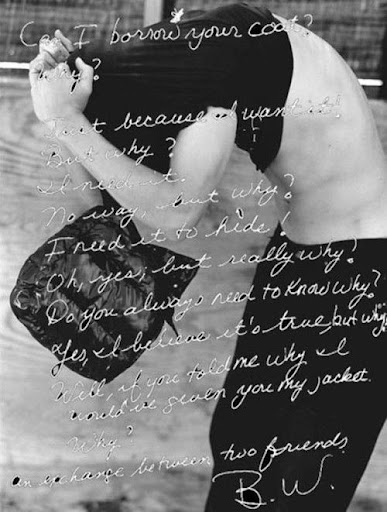 Can I borrow your coat?
Why?
Just because I want it!
But why?
I need it.
No way, but why?
I need it to hide!
Oh, yes, but really why?
Do you always need to know why?
Yes, I believe it's true, but why,
Well, if you told me why I
would've given you my jacket.
Why?
an exchange between two friends.
B.W.